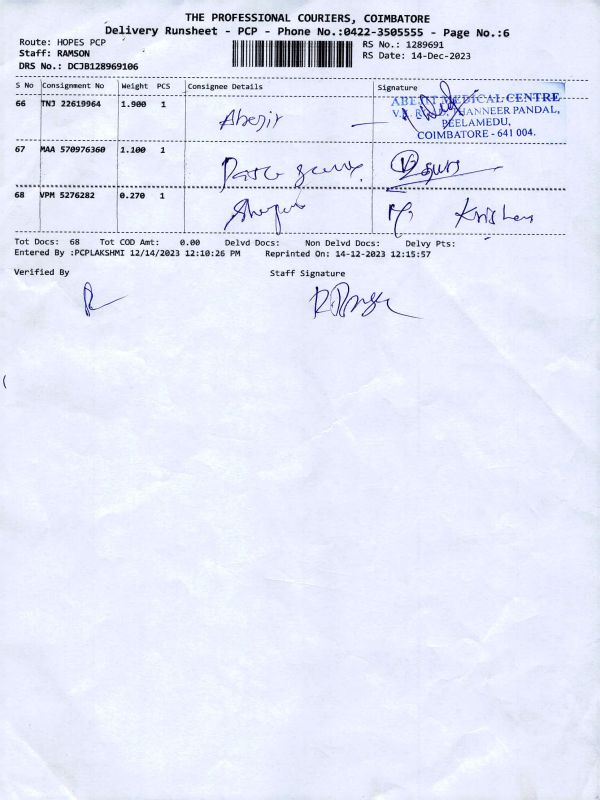 THE PROFESSIONAL COURIERS, COIMBATORE
Delivery Runsheet - PCP - Phone No.:0422-3505555 - Page No.:6
Route: HOPES PCP
Staff: RAMSON
DRS No.: DCJB128969106
RS No.: 1289691
RS Date: 14-Dec-2023
S No Consignment No Weight PCS Consignee Details Signature
66 TNJ 22619964 1.900 1
MEDICAL CENTRE
PANDAL,
PEELAMEDU,
COIMBATORE - 641 004.
67 MAA 570976360 1.100 1
68 VPM 5276282 0.270 1
Tot Docs: 68 Tot COD Amt: 0.00 Delvd Docs: Non Delvd Docs: Delvy Pts:
Entered By :PCPLAKSHMI 12/14/2023 12:10:26 PM Reprinted On: 14-12-2023 12:15:57
Verified By Staff Signature